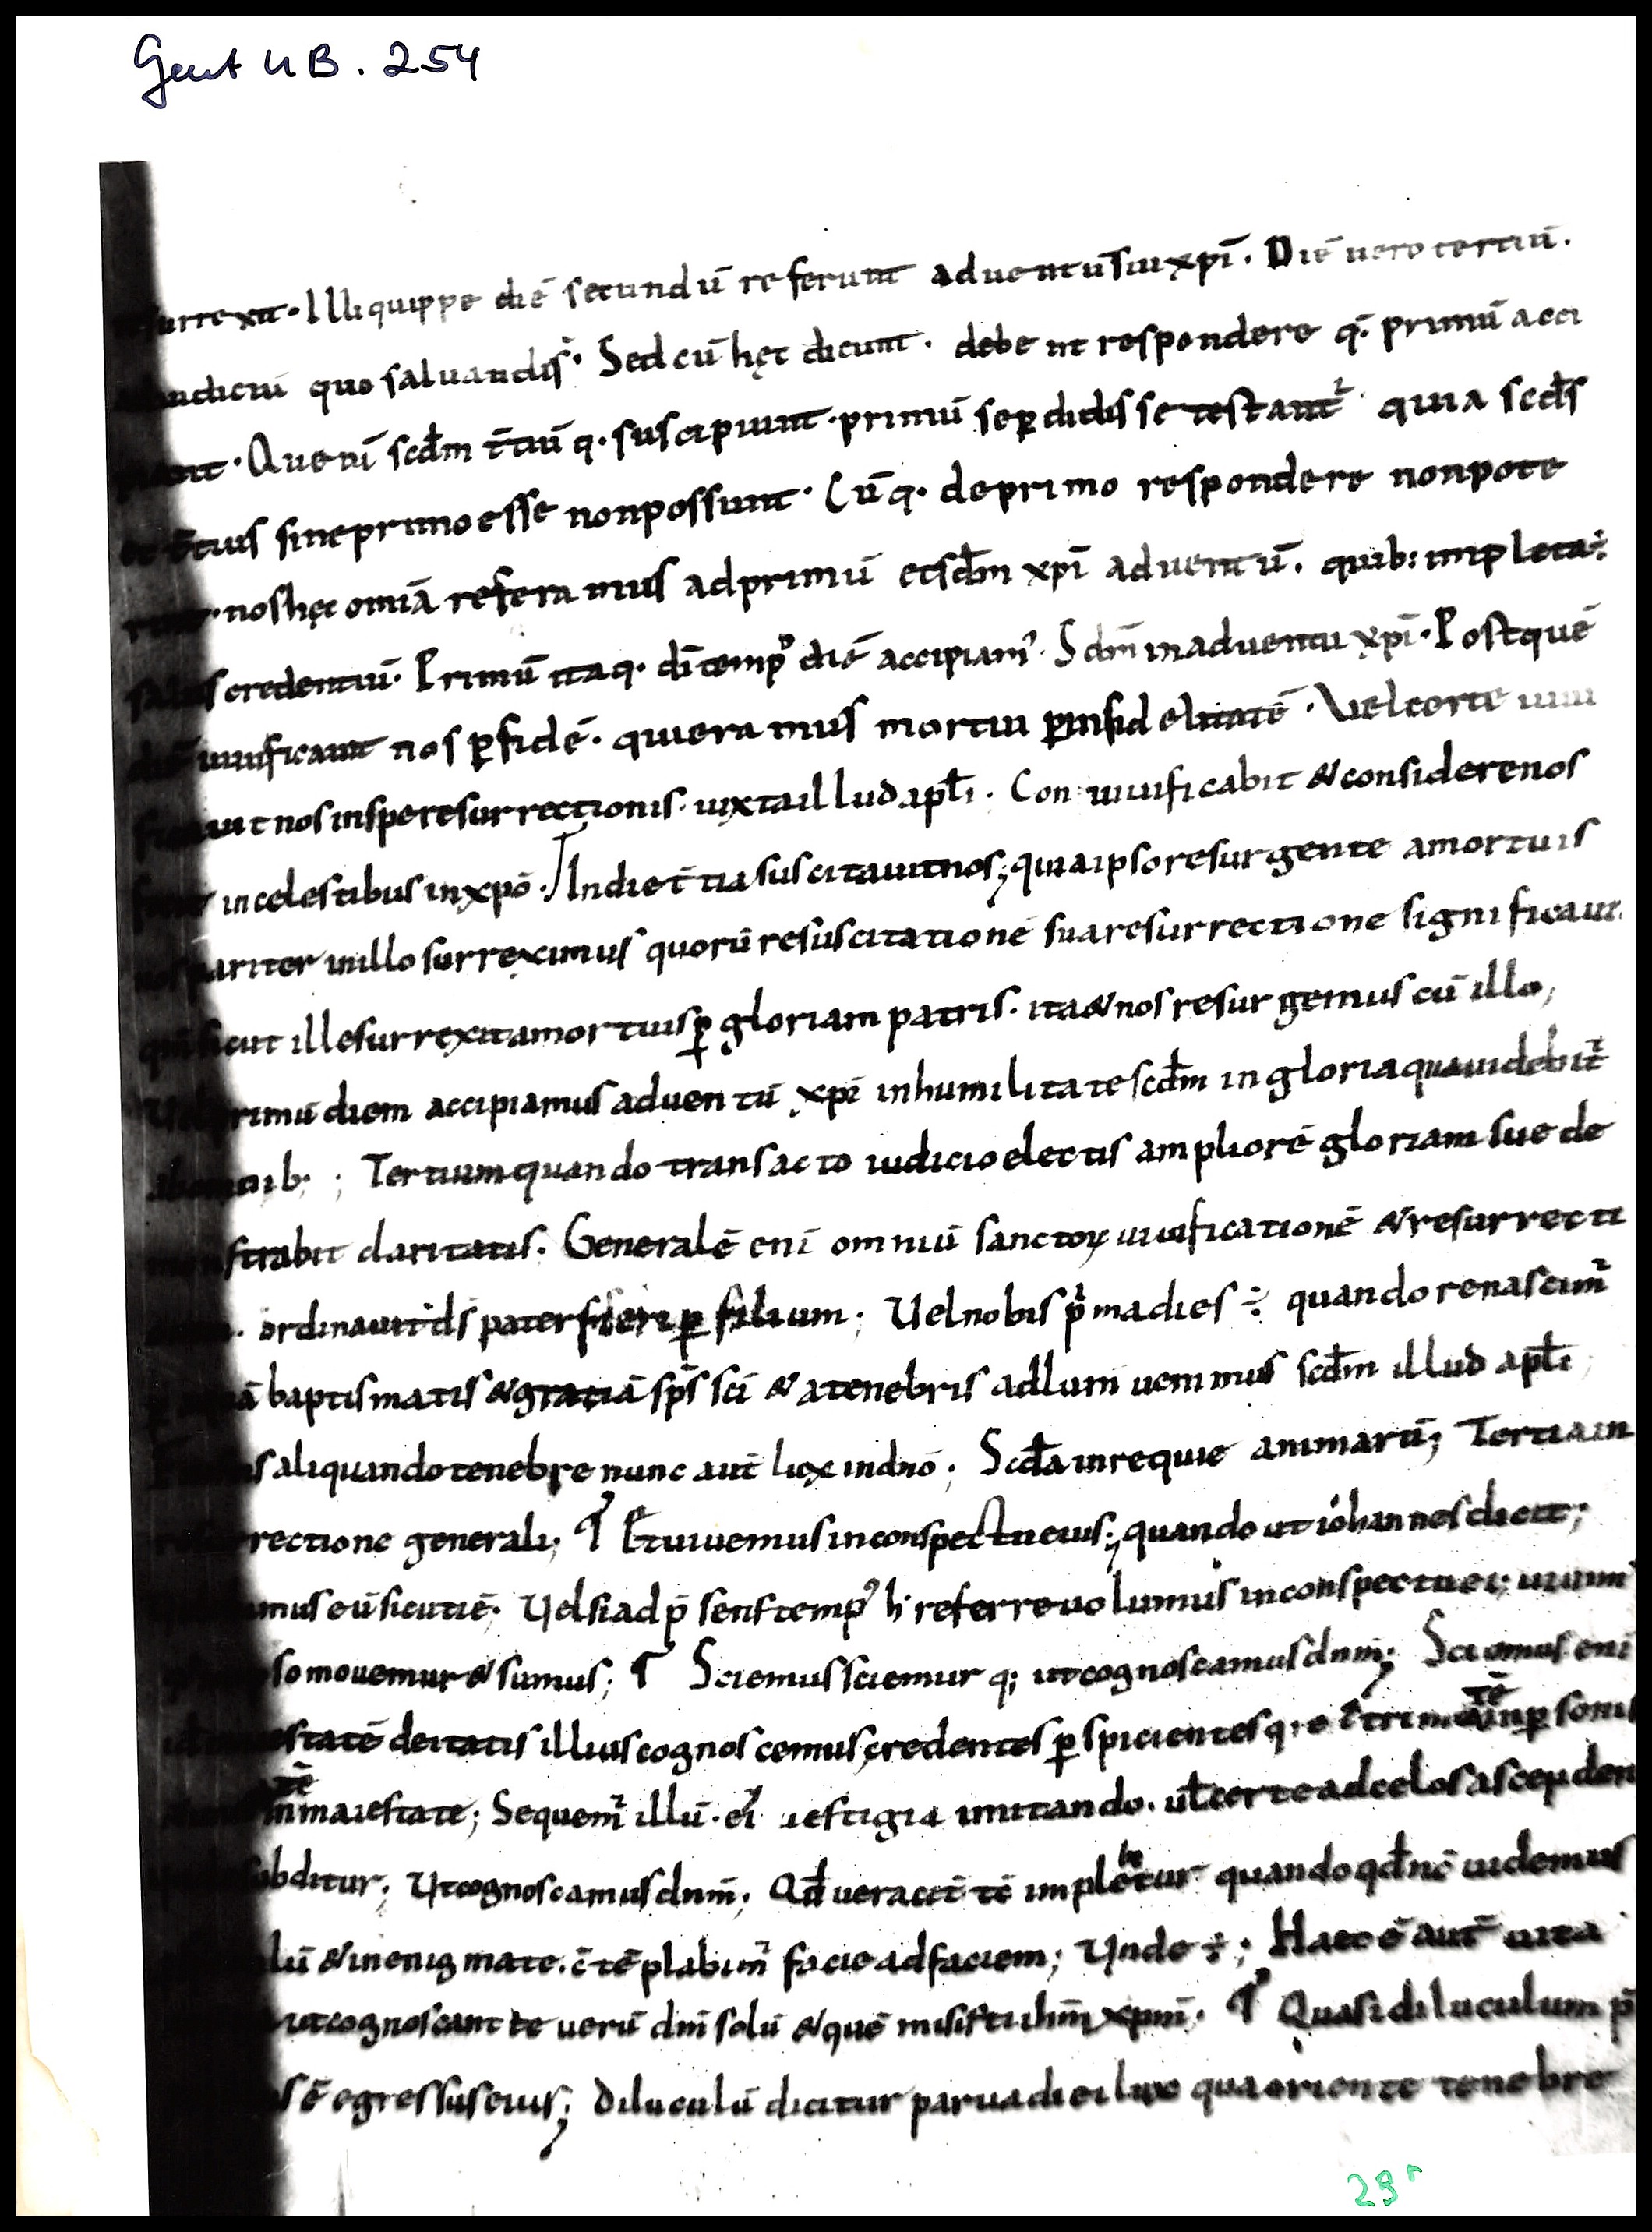 Gent UB. 254
surrexit · Illi quippe diē secundū referunt aduentū sui xpī · Diē uero tertiū ·
iudicīī quo saluandis̄ · Sed cū hęc dicunt · debent respondere q· primū acci
Que nī scd̄m t̄tiū q· suscipiunt · primū se ꝑdidisse testant᷑ quia scd̄s
et t̄tius sine primo esse non possunt · Cūq· de primo respondere non pote
nos hęc omīa referamus ad primū et scd̄m xpī aduentū · quib: impleta ÷
salus credentiū · Primū itaq· dī temp᾿ diē accipiam᾿ · Sdm̄ in aduentu xpī · Post quē
diē uiuificauit nos ꝑ fidē · qui eramus mortui ꝑ infidelitatē · Vel certe uiui
ficauit nos in spe resurrectionis · iuxta illud apl̄i · Conuiuificabit & considere nos
in celestibus in xpō · In die t̄tia suscitauit nos; quia ipso resurgente a mortuis
nos pariter in illo surreximus quorū resuscitationē sua resurrectione significauit
sicut ille surrexit a mortuis ꝑ gloriam patris · ita & nos resurgemus cū illo;
Vel primū diem accipiamus aduentū xpī in humilitate scd̄m in gloria qua uidebit᷑
ab omnib; ; Tertium quando transacto iudicio electis ampliorē gloriam sue de
monstrabit claritatis · Generalē enī omniū sanctoꝝ uiuificationē & resurrecti
ordinauit ds̄ pater fieri ꝑ filium; Vel nobis p̄ma dies ÷ quando renascim᷑
baptismatis & gratiā sp̄s sc̄i & a tenebris ad lum̄ uenimus scd̄m illud apl̄i;
aliquando tenebre nunc aut̄ lux in dnō; Scd̄a in requie animarū; Tertia in
resurrectione generali; ¶ Et uiuemus in conspectu eius; quando ut iohannes dicit;
mus eū sicuti ē · Vel si ad p̄sens temp᾿ h· referre uolumus in conspectu ei᾿ uiuim᾿
so mouemur & sumus; ¶ Sciemus sciemurq; ut cognoscamus dnm̄; Sciemus enī
maiestatē deitatis illius cognoscemus credentes ꝑspicientesq; e trinitatē in ꝑsonis
in maiestate; Sequem᷑ illū · ei᾿ uestigia imitando · ul̄ certe ad celos ascenden
subditur; Vt cognoscamus dnm̄; Qd̄ ueraciter implebetur quando qd̄ nc̄ uidemus
lū & in enigmate · c̄tēplabim᷑ facie ad faciem; Vnde ÷; Haec ē aut̄ uita
ut cognoscant te uerū dm̄ solū & quē misisti ihm̄ xpm̄ · ¶ Quasi diluculum p̄
ē egressus eius; Diluculū dicitur parua diei lux qua oriente tenebre
29r